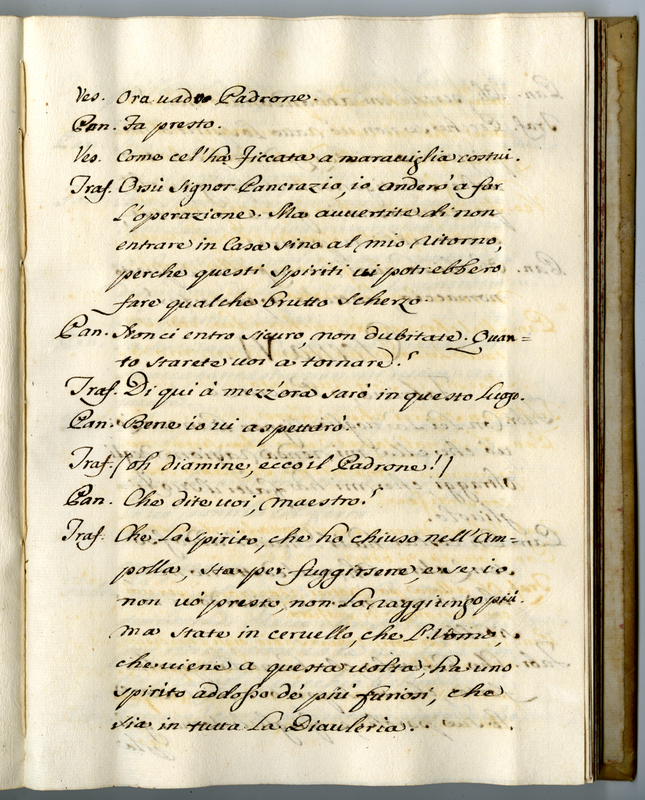 Ves. Ora vado Padrone.
Pan. Fa presto.
Ves. Come cel'ha ficcata a maraviglia costui.
Traf. Orsù Signor Pancrazio, io anderò a far
L'operazione. Ma avvertite di non
entrare in Casa sino al mio ritorno,
perche questi spiriti vi potrebbero
fare qualche brutto scherzo.
Pan. Non ci entro sicuro, non dubitate. Quan=
to starete voi a tornare?
Traf. Di qui à mezz'ora sarò in questo Luogo.
Pan. Bene io vi aspettarò.
Traf. (oh diamine, ecco il Padrone!)
Pan. Che dite voi, Maestro?
Traf. Che Lo Spirito, che ho chiuso nell'Am=
polla, sta per fuggirsene, e se io
non vò presto, non Lo raggiungo più.
Ma state in cervello, che L'Uomo,
che viene a questa volta, ha uno
spirito addosso dè più furiosi, che
sia in tutta La Diavleria.